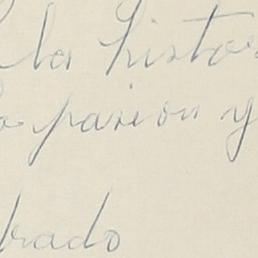 la histo
pasion y
brado